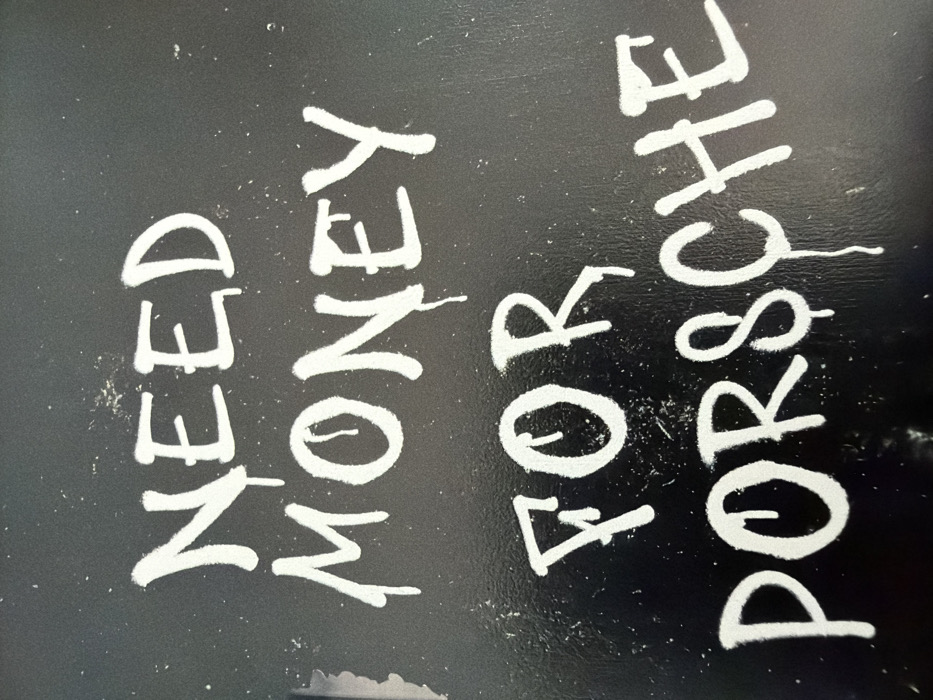 NEED
MONEY
FOR
PORSCHE